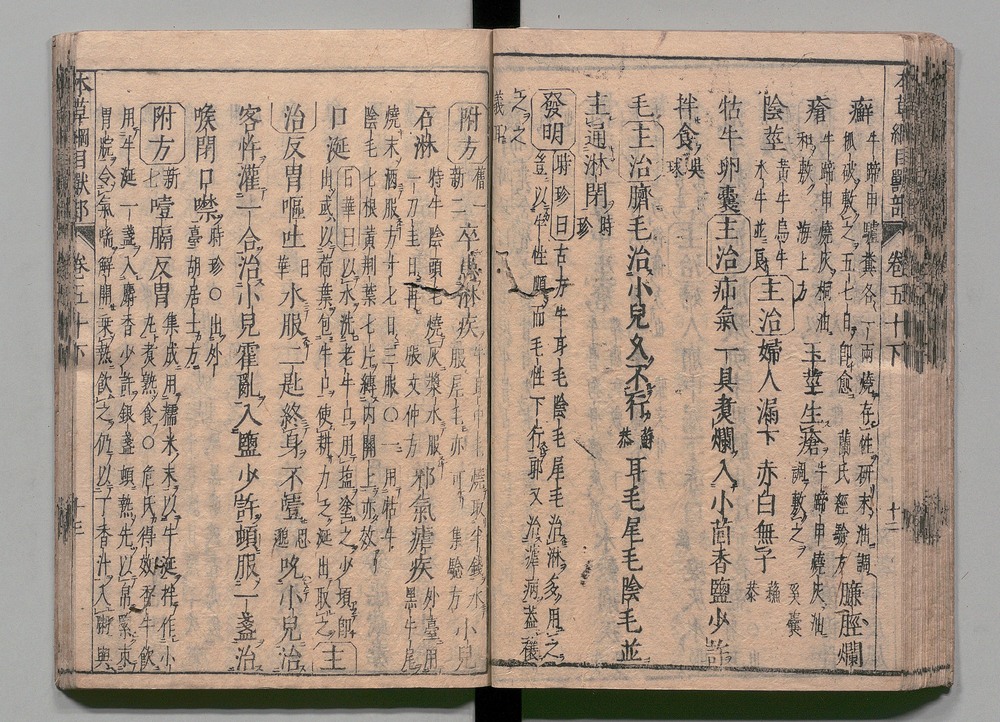 本草綱目獸部 卷五十下
癬 牛蹄甲 驢糞各一兩燒存性研末油調
抓破敷之五七日即愈 蘭氏經驗方 臁脛爛
瘡 牛蹄甲燒灰桐油
和敷 海上方 玉莖生瘡 牛蹄甲燒灰油
調敷之 奚囊
陰莖 黃牛烏牛
水牛並良 主治 婦人漏下赤白無子 蘇恭
牯牛卵囊 主治 疝氣一具煮爛入小茴香鹽少許
拌食 吳球
毛 主治 臍毛治小兒久不行 蘇恭 耳毛尾毛陰毛並
主通淋閉 時珍
發明 時珍曰古方牛耳毛陰毛尾毛治淋多用之
豈以牛性順而毛性下行耶又治瘧病蓋禳
之之
義耶
附方 舊一
新二 卒患淋疾
石淋 特牛陰頭毛燒灰漿水服
一刀圭日再 張文仲方 邪氣瘧疾 外臺用
黑牛尾
燒末酒服方寸七日三服○一用牯牛
陰毛七根黃荆葉七片纏內關上亦效
口涎 日華曰以水洗老牛口用塩塗之少頃即
出或以荷葉包牛口使耕力乏涎出取之 主
治 反胃嘔吐 日華 水服二匙終身不噎 思邈 吮小兒治
客忤灌一合治小兒霍亂入鹽少許頓服一盞治
喉閉口噤 時珍○出外
臺胡居士方
附方 新
七 噎膈反胃 集成用糯米末以牛涎拌作小
丸煮熟食○危氏得效香牛飲
用牛涎一盞入麝香少許銀盞頓熟先以帛緊束
胃脘令氣喘解開乘熱飲之仍以丁香汁入粥與